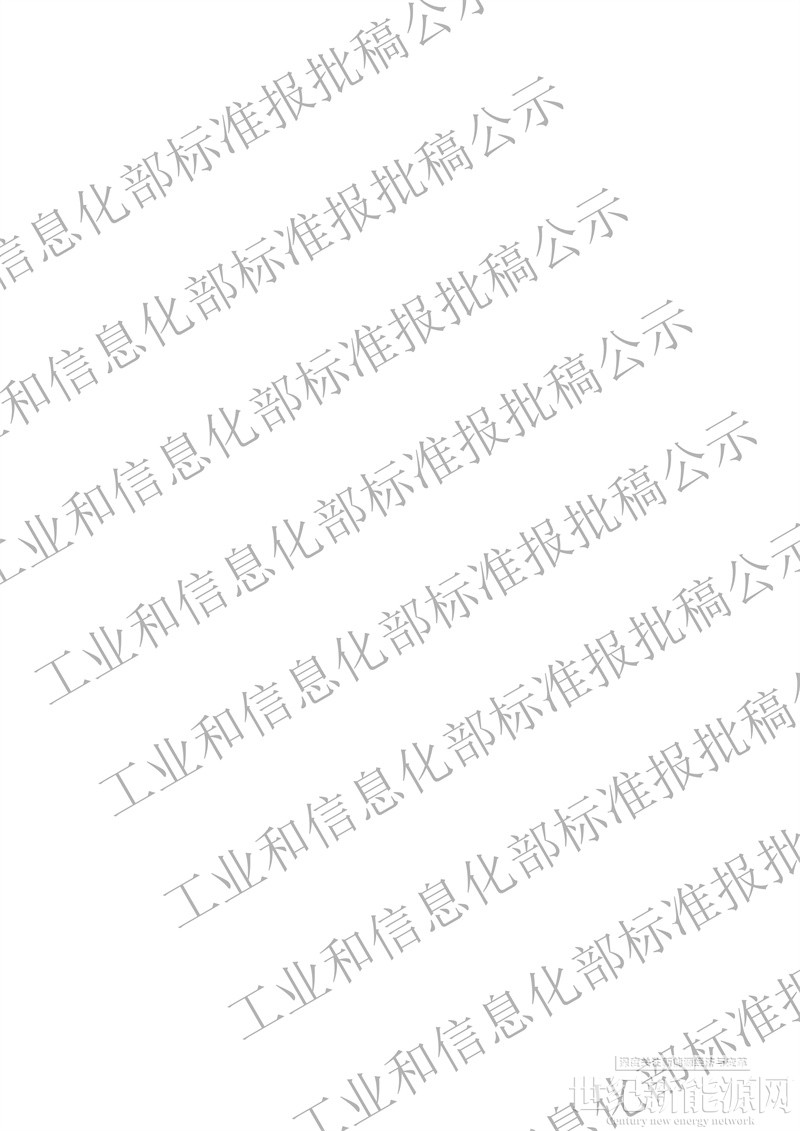 信息化部标准报批稿公示
和信息化部标准报批稿公示
工业和信息化部标准报批稿公示
工业和信息化部标准报批稿公示
工业和信息化部标准报批稿公示
工业和信息化部标准报批稿公示
工业和信息化部标准报批稿公
工业和信息化部标准报批
工业和信息化部标准报
世纪新能源网
Century new energy network